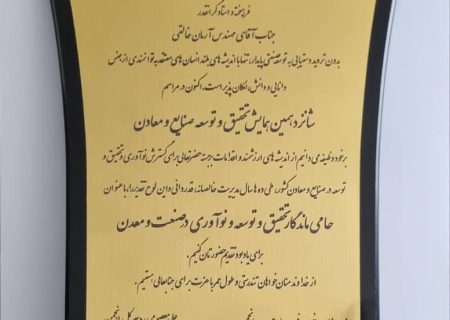 فرهیخته و استاد گرانقدر
جناب آقای مهندس آرمان خالقی
بدون تردید دستیابی به توسعه صنعتی پایدار، تنها با اندیشه های بلند انسان های معتقد به توانمندی از جنس
دانایی و دانش، امکان پذیر است، اکنون در مراسم
شانزدهمین همایش تحقیق و توسعه صنایع و معادن
برخود وظیفه می دانیم از اندیشه های ارزشمند و اقدامات برجسته حضرتعالی برای گسترش نوآوری و تحقیق و
توسعه در صنایع و معادن کشور، طی ده ها سال مدیریت خالصانه، قدردانی و این لوح تقدیر را، با عنوان
حامی ماندگار تحقیق و توسعه و نوآوری در صنعت و معدن
برای یادبود تقدیم حضورتان کنیم.
از خداوند منان خواهان تندرستی و طول عمر با عزت برای جنابعالی هستیم.